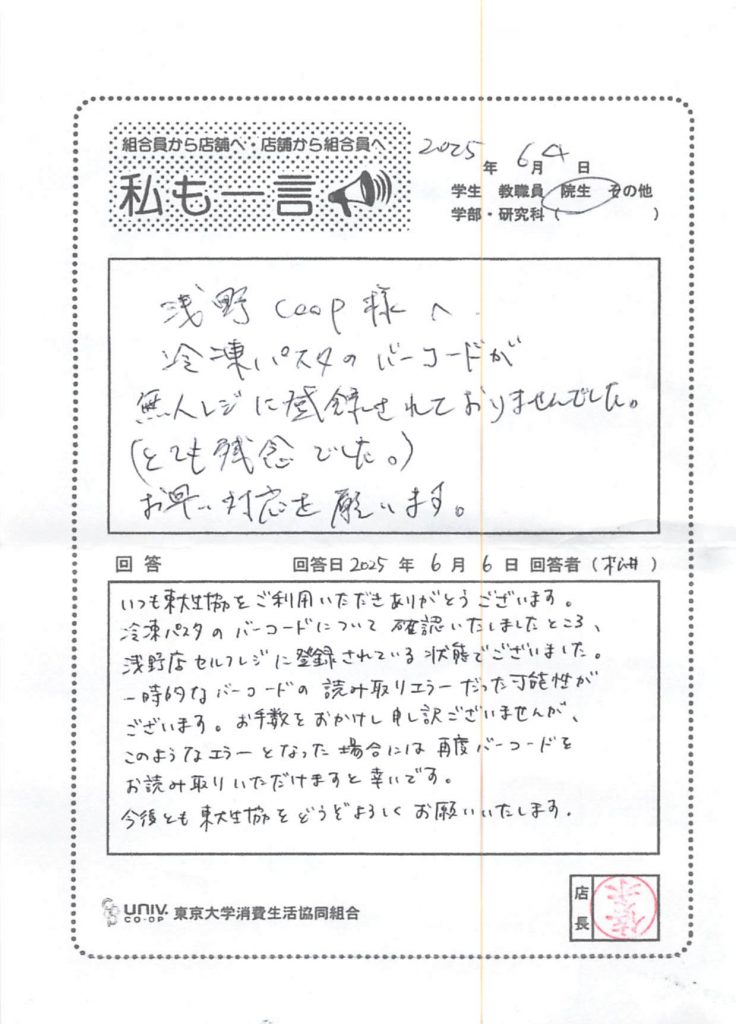 組合員から店舗へ・店舗から組合員へ
私も一言
2025年6月4日
学生 教職員 院生 その他
学部・研究科( )
浅野coop様へ
冷凍パスタのバーコードが
無人レジに登録されておりませんでした。
(とても残念でした。)
お早い対応を願います。
回答 回答日2025年6月6日 回答者(松井)
いつも東大生協をご利用いただきありがとうございます。
冷凍パスタのバーコードについて確認いたしましたところ、
浅野店セルフレジに登録されている状態でございました。
一時的なバーコードの読み取りエラーだった可能性が
ございます。お手数をおかけし申し訳ございませんが、
このようなエラーとなった場合には再度バーコードを
お読み取りいただけますと幸いです。
今後とも東大生協をどうぞよろしくお願いいたします。
UNIV. CO-OP 東京大学消費生活協同組合
店長